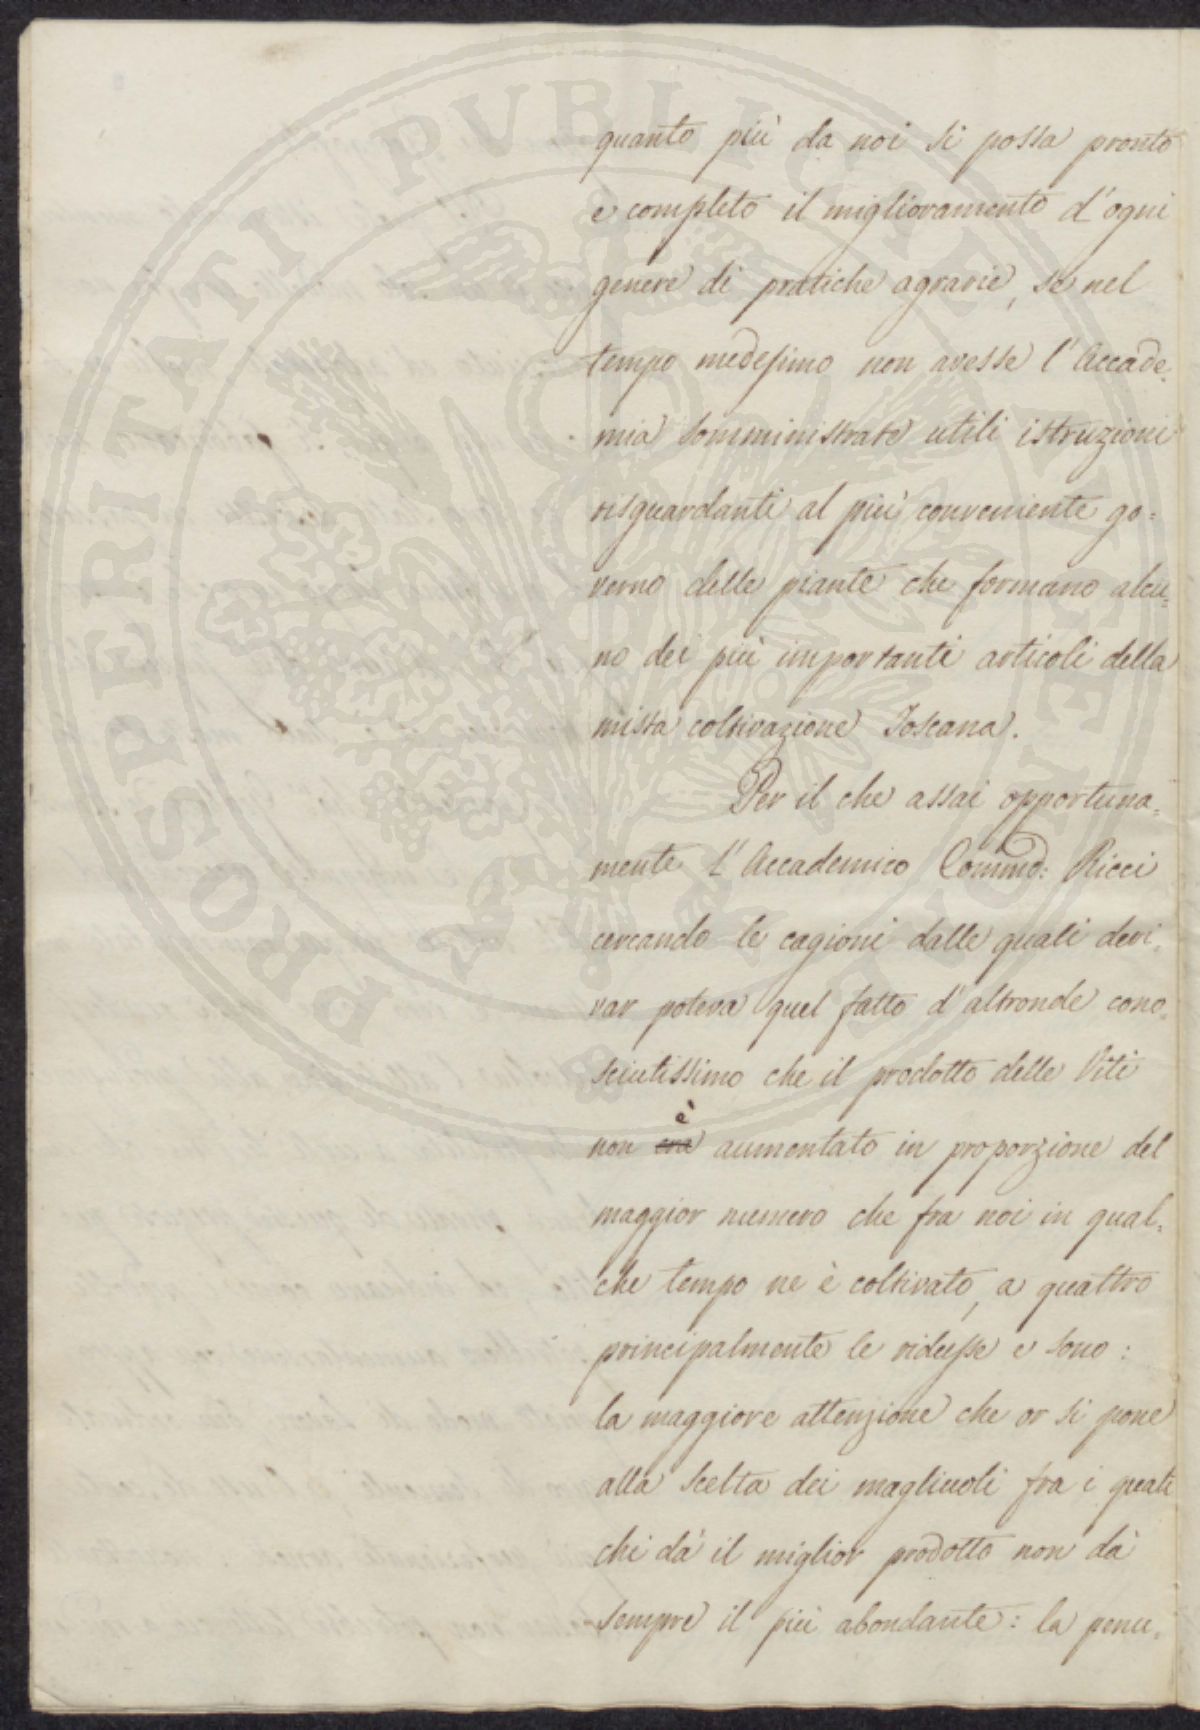 quanto più da noi si possa pronto
e completo il miglioramento d'ogni
genere di pratiche agrarie, se nel
tempo medesimo non avesse l'Accade=
mia somministrate utili istruzioni
risguardanti al più conveniente go=
verno delle piante che formano alcu=
no dei più importanti articoli della
mista coltivazione Toscana.
Per il che assai opportuna=
mente l'Accademico Commd: Ricci
cercando le cagioni dalle quali deri=
var poteva quel fatto d'altronde cono=
sciutissimo che il prodotto delle Viti
è
non era aumentato in proporzione del
maggior numero che fra noi in qual=
che tempo ne è coltivato, a quattro
principalmente le ridusse e sono:
la maggiore attenzione che or si pone
alla scelta dei magliuoli fra i quali
chi dà il miglior prodotto non dà
sempre il più abondante: la penu=
PROSPERITATI PVBLICAE AVGENDAE